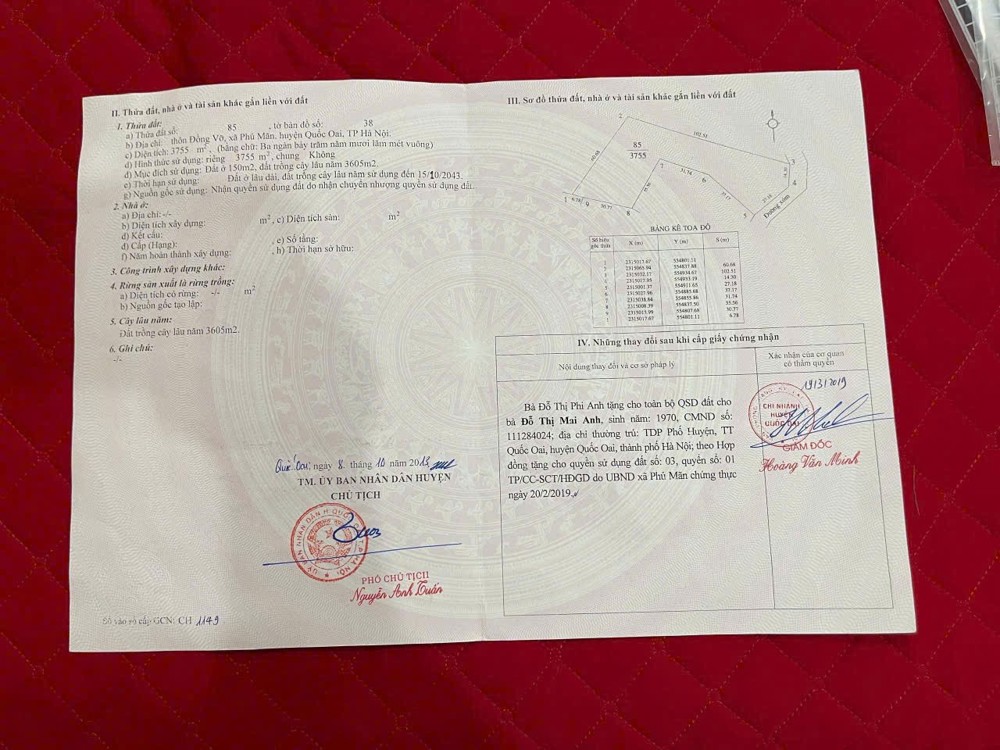 II. Thửa đất, nhà ở và tài sản khác gắn liền với đất
1. Thửa đất:
a) Thửa đất số: 85 , tờ bản đồ số: 38
b) Địa chỉ: thôn Đồng Vỡ, xã Phú Mãn, huyện Quốc Oai, TP Hà Nội:
c) Diện tích: 3755 m², (bằng chữ: Ba ngàn bảy trăm năm mươi lăm mét vuông)
d) Hình thức sử dụng: riêng 3755 m², chung Không
đ) Mục đích sử dụng: Đất ở 150m2, đất trồng cây lâu năm 3605m2
e) Thời hạn sử dụng: Đất ở lâu dài, đất trồng cây lâu năm sử dụng đến 15/10/2043.
g) Nguồn gốc sử dụng: Nhận quyền sử dụng đất do nhận chuyển nhượng quyền sử dụng đất.
2. Nhà ở:
a) Địa chỉ: -/-
b) Diện tích xây dựng: m², c) Diện tích sàn: m²
d) Kết cấu: , e) Số tầng:
đ) Cấp (Hạng): , h) Thời hạn sở hữu:
f) Năm hoàn thành xây dựng:
3. Công trình xây dựng khác:
4. Rừng sản xuất là rừng trồng:
a) Diện tích có rừng: -/- m²
b) Nguồn gốc tạo lập:
5. Cây lâu năm:
Đất trồng cây lâu năm 3605m2.
6. Ghi chú:
-/-
Quốc Oai, ngày 8 tháng 10 năm 2013
TM. ỦY BAN NHÂN DÂN HUYỆN
CHỦ TỊCH
PHÓ CHỦ TỊCH
Nguyễn Anh Tuấn
Số vào sổ cấp GCN: CH 1149
III. Sơ đồ thửa đất, nhà ở và tài sản khác gắn liền với đất
85
3755
1 2 3 4 5 6 7 8 9
102.51
31.74
Đường xóm
BẢNG KÊ TOẠ ĐỘ
Số hiệu góc thửa X (m) Y (m) S (m)
60.64
102.51
14.30
27.18
37.17
31.74
35.56
30.77
6.78
IV. Những thay đổi sau khi cấp giấy chứng nhận
Nội dung thay đổi và cơ sở pháp lý
Xác nhận của cơ quan có thẩm quyền
Bà Đỗ Thị Phi Anh tặng cho toàn bộ QSD đất cho
bà Đỗ Thị Mai Anh, sinh năm: 1970, CMND số:
111284024; địa chỉ thường trú: TDP Phố Huyện, TT
Quốc Oai, huyện Quốc Oai, thành phố Hà Nội; theo Hợp
đồng tặng cho quyền sử dụng đất số: 03, quyển số: 01
TP/CC-SCT/HĐGD do UBND xã Phú Mãn chứng thực
ngày 20/2/2019.
19/3/2019
CHI NHÁNH
HUYỆN
QUỐC OAI
GIÁM ĐỐC
Hoàng Văn Minh